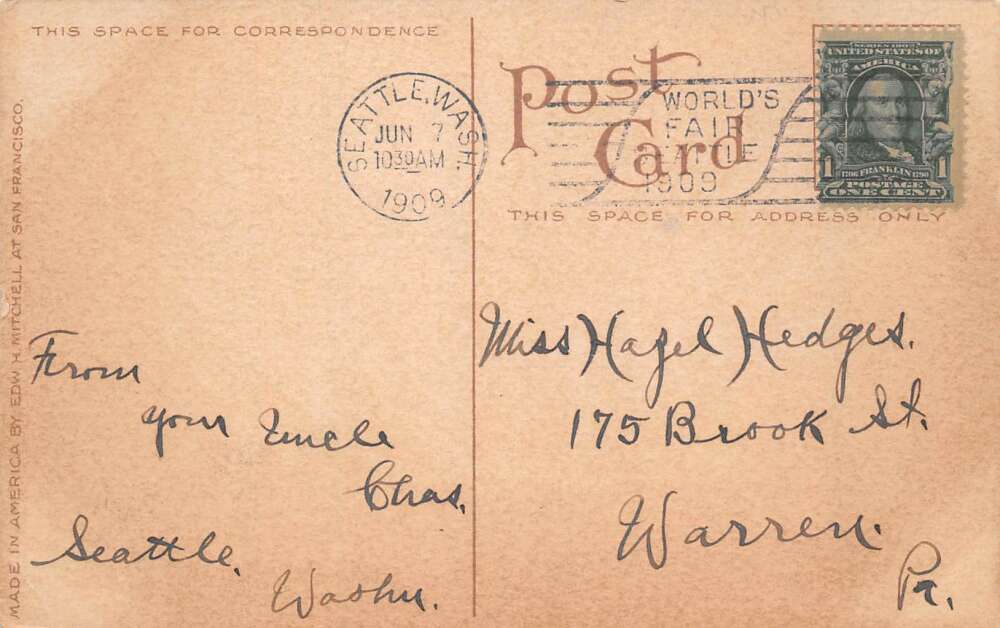 THIS SPACE FOR CORRESPONDENCE
MADE IN AMERICA BY EDW. H. MITCHELL AT SAN FRANCISCO.
SEATTLE, WASH.
JUN 7
1030AM
1909
Post
Card
WORLD'S
FAIR
1909
SERIES 1902
UNITED STATES OF
AMERICA
1706 FRANKLIN 1790
1 1
POSTAGE
ONE CENT
THIS SPACE FOR ADDRESS ONLY
From
your Uncle
Chas.
Seattle.
Washn.
Miss Hazel Hedges.
175 Brook St.
Warren.
Pa.